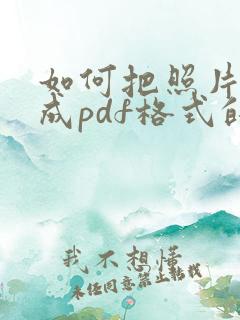 如何把照片
成pdf格式的
我不想懂
未经同意禁止转载